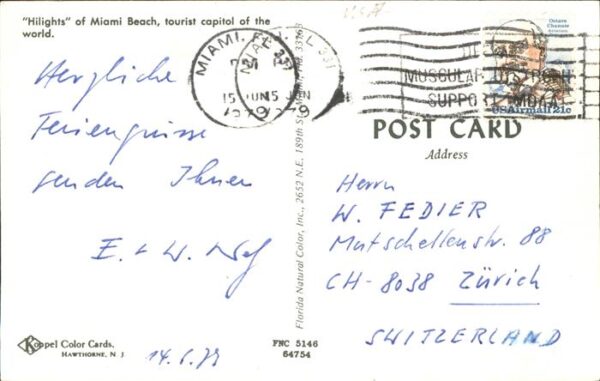 "Hilights" of Miami Beach, tourist capitol of the
world.
Herzliche
Feriengrüsse
senden Ihnen
E. + W.
Koppel Color Cards.
HAWTHORNE, N J
14.6.79
Florida Natural Color, Inc., 2652 N.E. 189th St.
33163
FNC 5146
64754
U.S.A
MIAMI, FL 331
PM
15 JUN
1979
MIAMI, FL 331
15 JUN
1979
MUSCULAR DYSTROPHY
SUPPORT MDAA
Octave
Chanute
US Airmail 21c
POST CARD
Address
Herrn
W. FEDIER
Mutschellenstr. 88
CH-8038 Zürich
SWITZERLAND